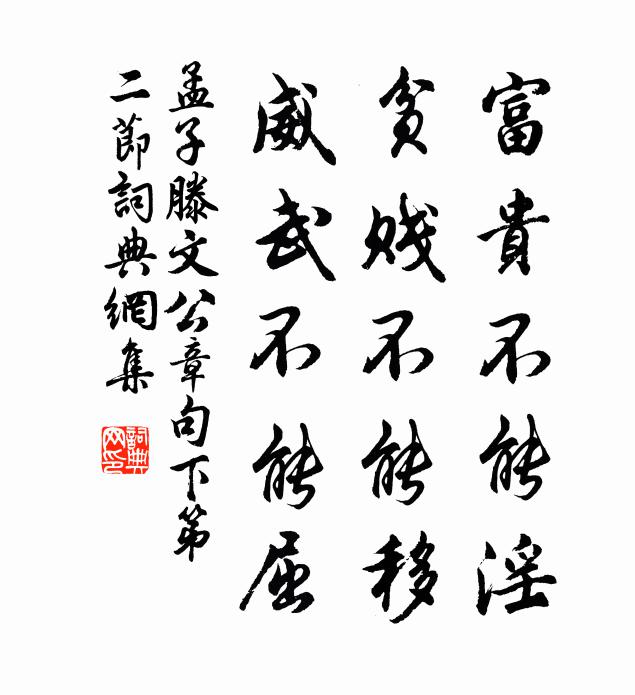 富貴不能淫
貧賤不能移
威武不能屈
孟子滕文公章句下第
二節詞典網集
詞典
网印